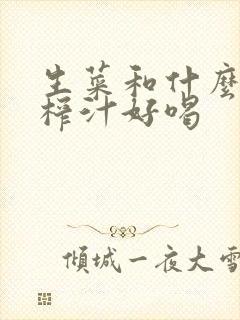 生菜和什麼
榨汁好喝
傾城一夜大雪